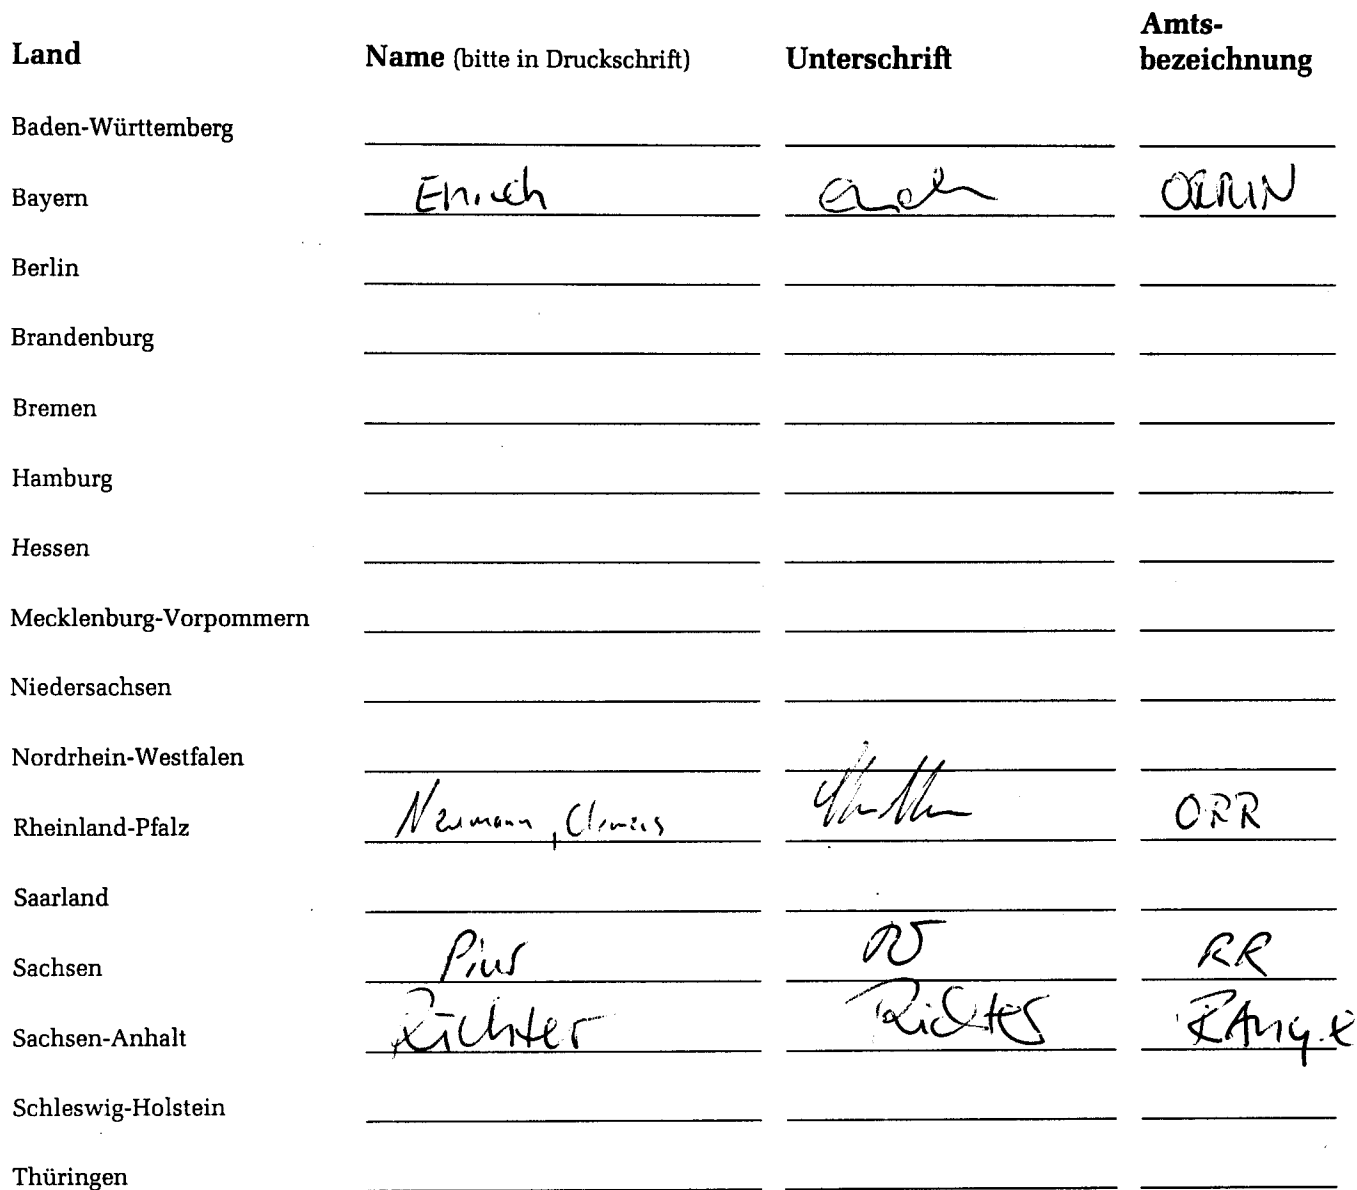 Land Name (bitte in Druckschrift) Unterschrift Amts-
bezeichnung
Baden-Württemberg
Bayern
Berlin
Brandenburg
Bremen
Hamburg
Hessen
Mecklenburg-Vorpommern
Niedersachsen
Nordrhein-Westfalen
Rheinland-Pfalz Neumann, Clemens ORR
Saarland
Sachsen Pius RR
Sachsen-Anhalt Richter Richter
Schleswig-Holstein
Thüringen